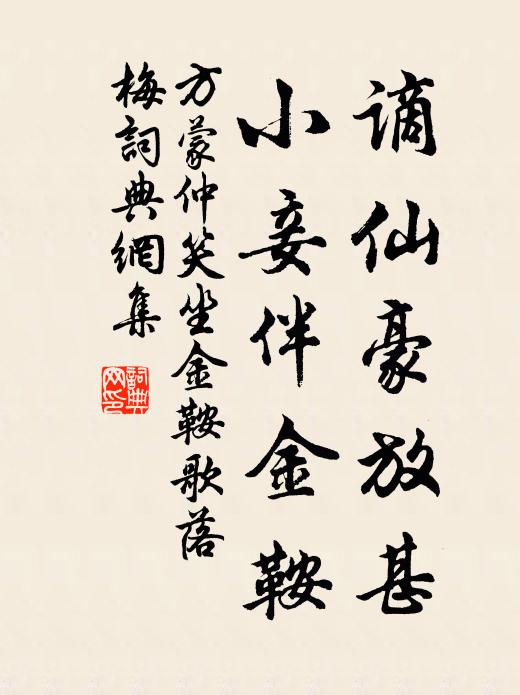 謫仙豪放甚
小妾伴金鞍
方蒙仲笑坐金鞍歌落
梅詞典網集
詞典
网印